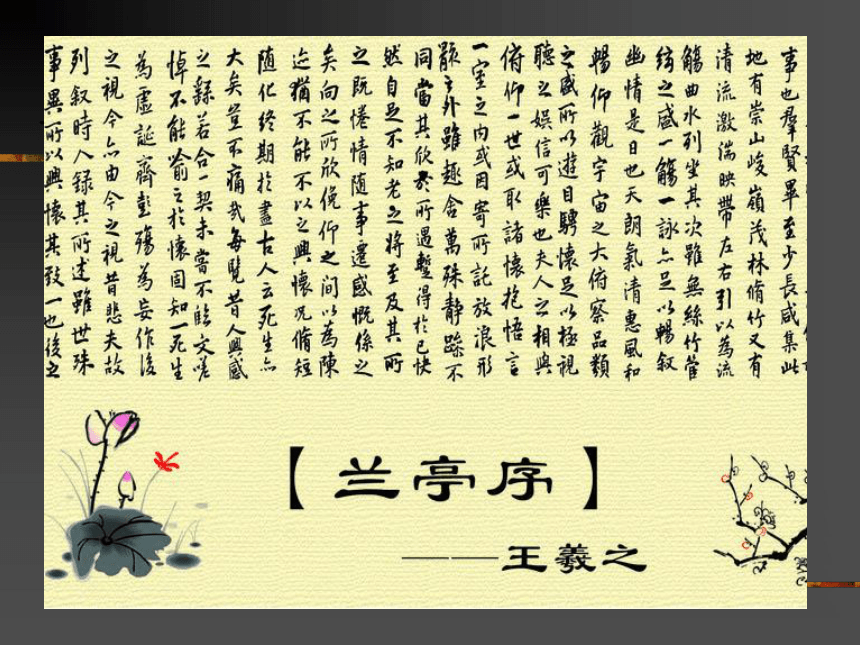 事也羣賢畢至少長咸集此
地有崇山峻嶺茂林脩竹又有
清流激湍映帶左右引以為流
觴曲水列坐其次雖無絲竹管
絃之盛一觴一詠亦足以暢叙
幽情是日也天朗氣清惠風和
暢仰觀宇宙之大俯察品類
之盛所以遊目騁懷足以極視
聽之娛信可樂也夫人之相與
俯仰一世或取諸懷抱悟言
一室之內或因寄所託放浪形
骸之外雖趣舍萬殊靜躁不
同當其欣於所遇暫得於己快
然自足不知老之將至及其所
之既惓情隨事遷感慨係之
矣向之所欣俛仰之間以為陳
迹猶不能不以之興懷況脩短
隨化終期於盡古人云死生亦
大矣豈不痛哉每覽昔人興感
之繇若合一契未嘗不臨文嗟
悼不能喻之於懷固知一死生
為虛誕齊彭殤為妄作後
之視今亦由今之視昔悲夫故
列叙時人錄其所述雖世殊
事異所以興懷其致一也後之
【兰亭序】
——王羲之